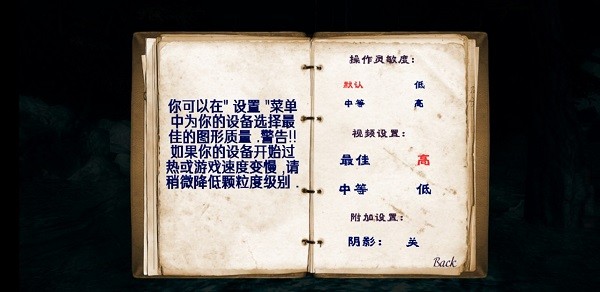 你可以在" 设置 "菜单
中为你的设备选择最
佳的图形质量 .警告!!
如果你的设备开始过
热或游戏速度变慢 ,请
稍微降低颗粒度级别 .
操作灵敏度:
默认 低
中等 高
视频设置:
最佳 高
中等 低
附加设置:
阴影: 关
Back